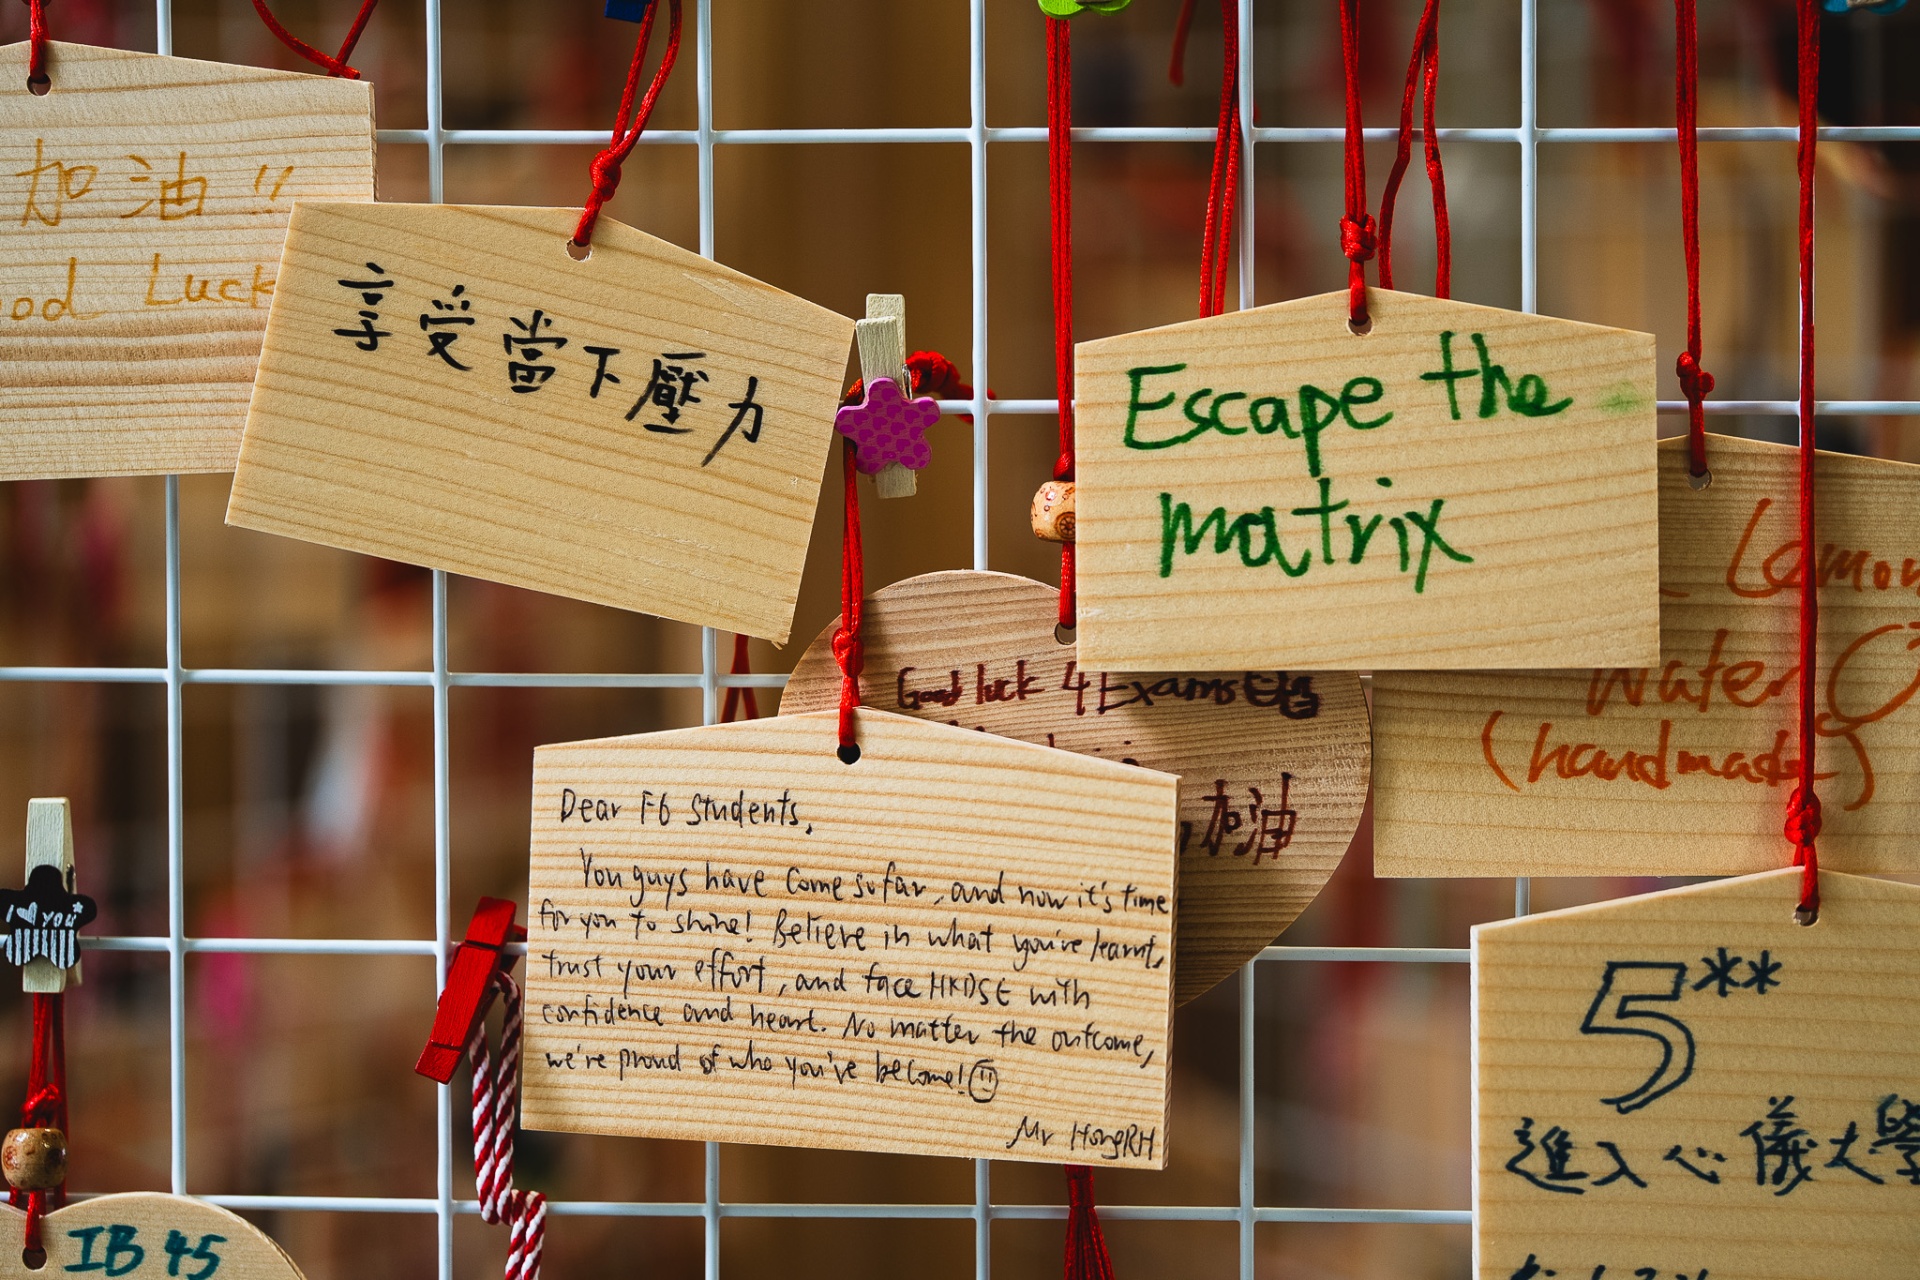 加油!!
Good Luck
享受當下壓力
Escape the
matrix
Lemon
Water
(handmade)
Good luck 4 Exams
加油
Dear F6 Students,
You guys have come so far, and now it's time
for you to shine! Believe in what you've learnt,
trust your effort, and face HKDSE with
confidence and heart. No matter the outcome,
we're proud of who you've become!
Mr HongRH
I YOU
5**
進入心儀大學
IB 45